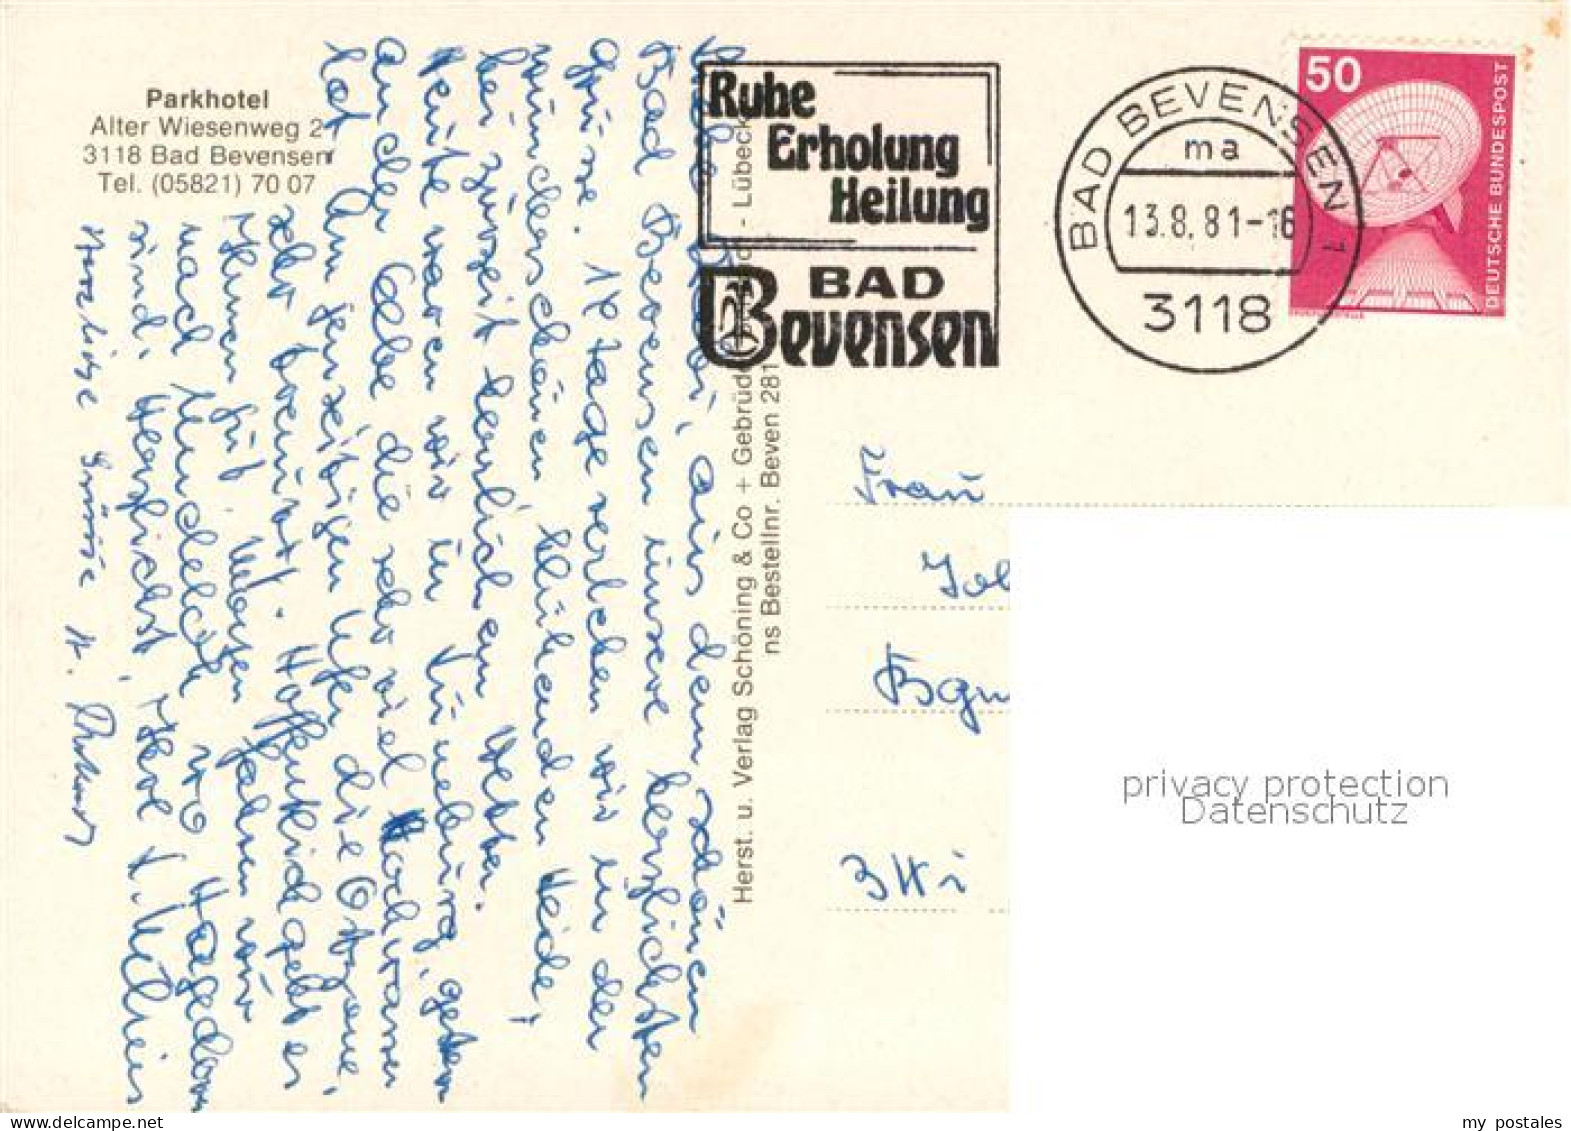 Parkhotel
Alter Wiesenweg 2
3118 Bad Bevensen
Tel. (05821) 70 07
Ruhe
Erholung
Heilung
BAD
Bevensen
BAD BEVENSEN 1
ma
13.8.81-16
3118
50
DEUTSCHE BUNDESPOST
aus dem schönen
Bad Bevensen unsere herzlichsten
Grüsse. 12 Tage verleben wir in der
wunderschönen blühenden Heide,
bei zurzeit herrlichem Wetter.
Heute waren wir in Lüneburg, gestern
an der Elbe die sehr viel Hochwasser
hat. Am jenseitigen Ufer die Ostzone,
sehr bewacht. Hoffentlich geht es
Ihnen gut. Morgen fahren wir
nach wo
sind. Herzlichst, Ihre
Herzliche Grüsse
Herst. u. Verlag Schöning & Co + Gebrüder - Lübeck
ns Bestellnr. Beven 281
Frau
privacy protection
Datenschutz
my postales